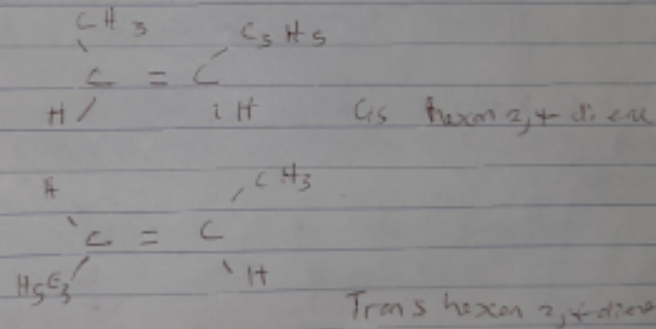 CH3 C3H5
C = C
H H Cis hexan 2,4 diene
H CH3
C = C
H5C3 H
Trans hexan 2,4-diene